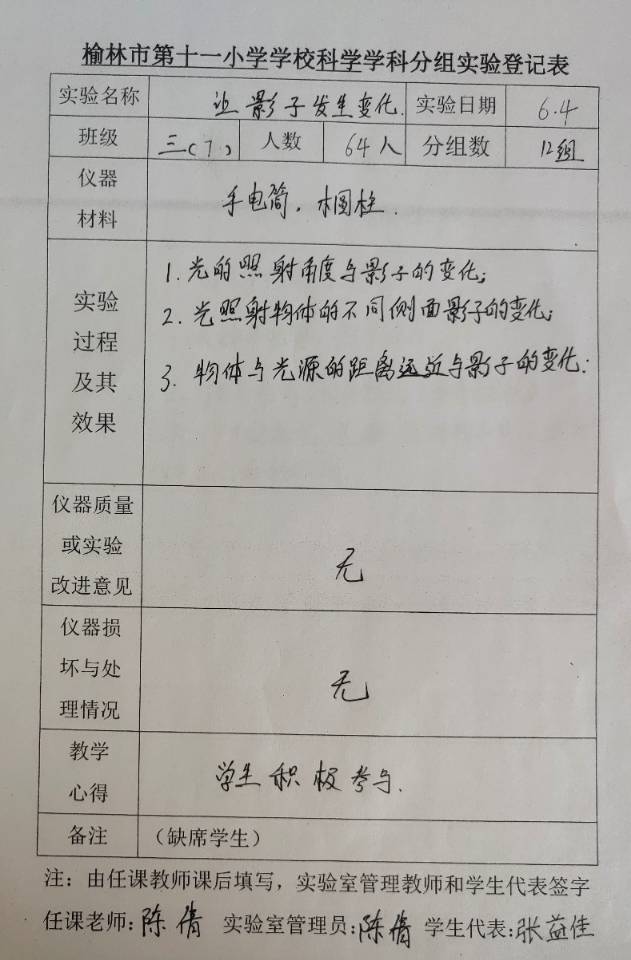 榆林市第十一小学学校科学学科分组实验登记表
实验名称 让影子发生变化. 实验日期 6.4
班级 三(7) 人数 64人 分组数 12组
仪器
材料
手电筒, 木圆柱.
实验
过程
及其
效果
1. 光的照射角度与影子的变化;
2. 光照射物体的不同侧面影子的变化;
3. 物体与光源的距离远近与影子的变化.
仪器质量
或实验
改进意见
无
仪器损
坏与处
理情况
无
教学
心得
学生积极参与.
备注 (缺席学生)
注: 由任课教师课后填写, 实验室管理教师和学生代表签字
任课老师: 陈倩 实验室管理员: 陈倩 学生代表: 张益佳